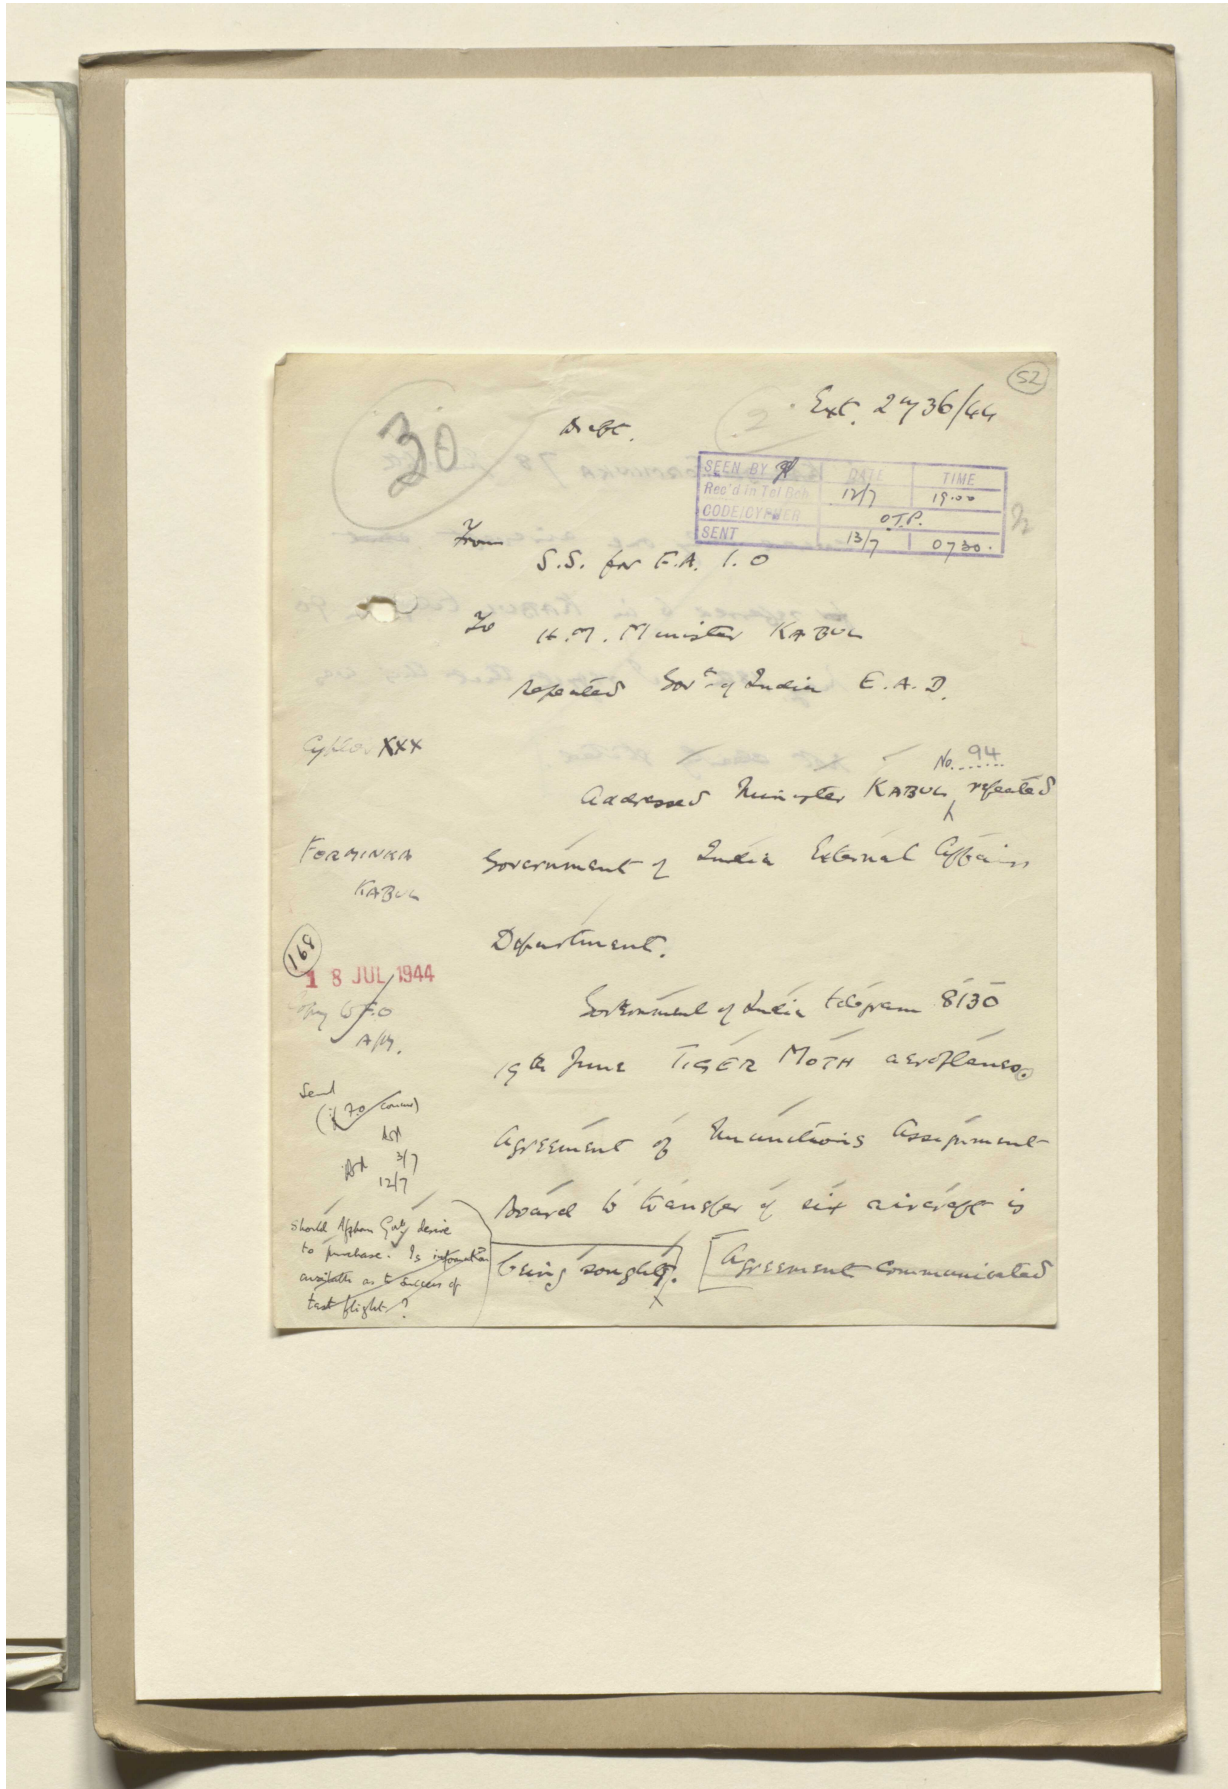 52
Ext. 2736/44
30
2
Draft.
SEEN BY DATE TIME
Rec'd in Tel Bch 12/7 19.00
CODE/CYPHER O.T.P.
SENT 13/7 0730.
From
S.S. for F.A. I.O
To H.M. Minister KABUL
repeated Govt of India E.A.D.
Cypher XXX
No. 94
Addressed Minister KABUL, repeated
FORMINKA
KABUL
Government of India External Affairs
Department.
168
18 JUL 1944
Copy to F.O
A/M.
Government of India telegram 8130
19th June TIGER MOTH aeroplanes.
Send
(if F.O concur)
3/7
12/7
Agreement of Munitions Assignment
Board to transfer of six aircraft is
being sought. [Agreement communicated
should Afghan Govt desire
to purchase. Is information
available as to success of
test flight?